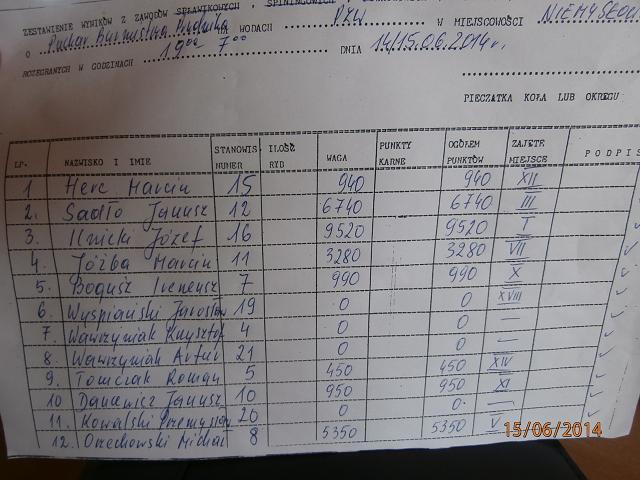 ZESTAWIENIE WYNIKÓW Z ZAWODÓW SPŁAWIKOWYCH, SPININGOWYCH
O Puchar Burmistrza NA WODACH PZW W MIEJSCOWOŚCI
ROZEGRANYCH W GODZINACH 19⁰⁰ 7⁰⁰ DNIA 14/15.06.2014r.
PIECZĄTKA KOŁA LUB OKRĘGU
LP. NAZWISKO I IMIĘ STANOWIS NUMER ILOŚĆ RYB WAGA PUNKTY KARNE OGÓŁEM PUNKTÓW ZAJĘTE MIEJSCE PODPIS
1 Herc Marcin 15 940 940 XII
2. Sadło Janusz 12 6740 6740 III
3. Ilnicki Józef 16 9520 9520 I
4. Jóźba Marcin 11 3280 3280 VII
5. Bogusz Ireneusz 7 990 990 X
6. Wyspiański Jarosław 19 0 0 XVIII
7. Wawrzyniak Krzysztof 4 0 0 —
8. Wawrzyniak Artur 21 0 0 —
9. Tomczak Roman 5 450 450 XIV
10 Dancewicz Janusz 10 950 950 XI
11. Kowalski Przemysław 20 0 0. —
12. Orzechowski Michał 8 5350 5350 V
15/06/2014